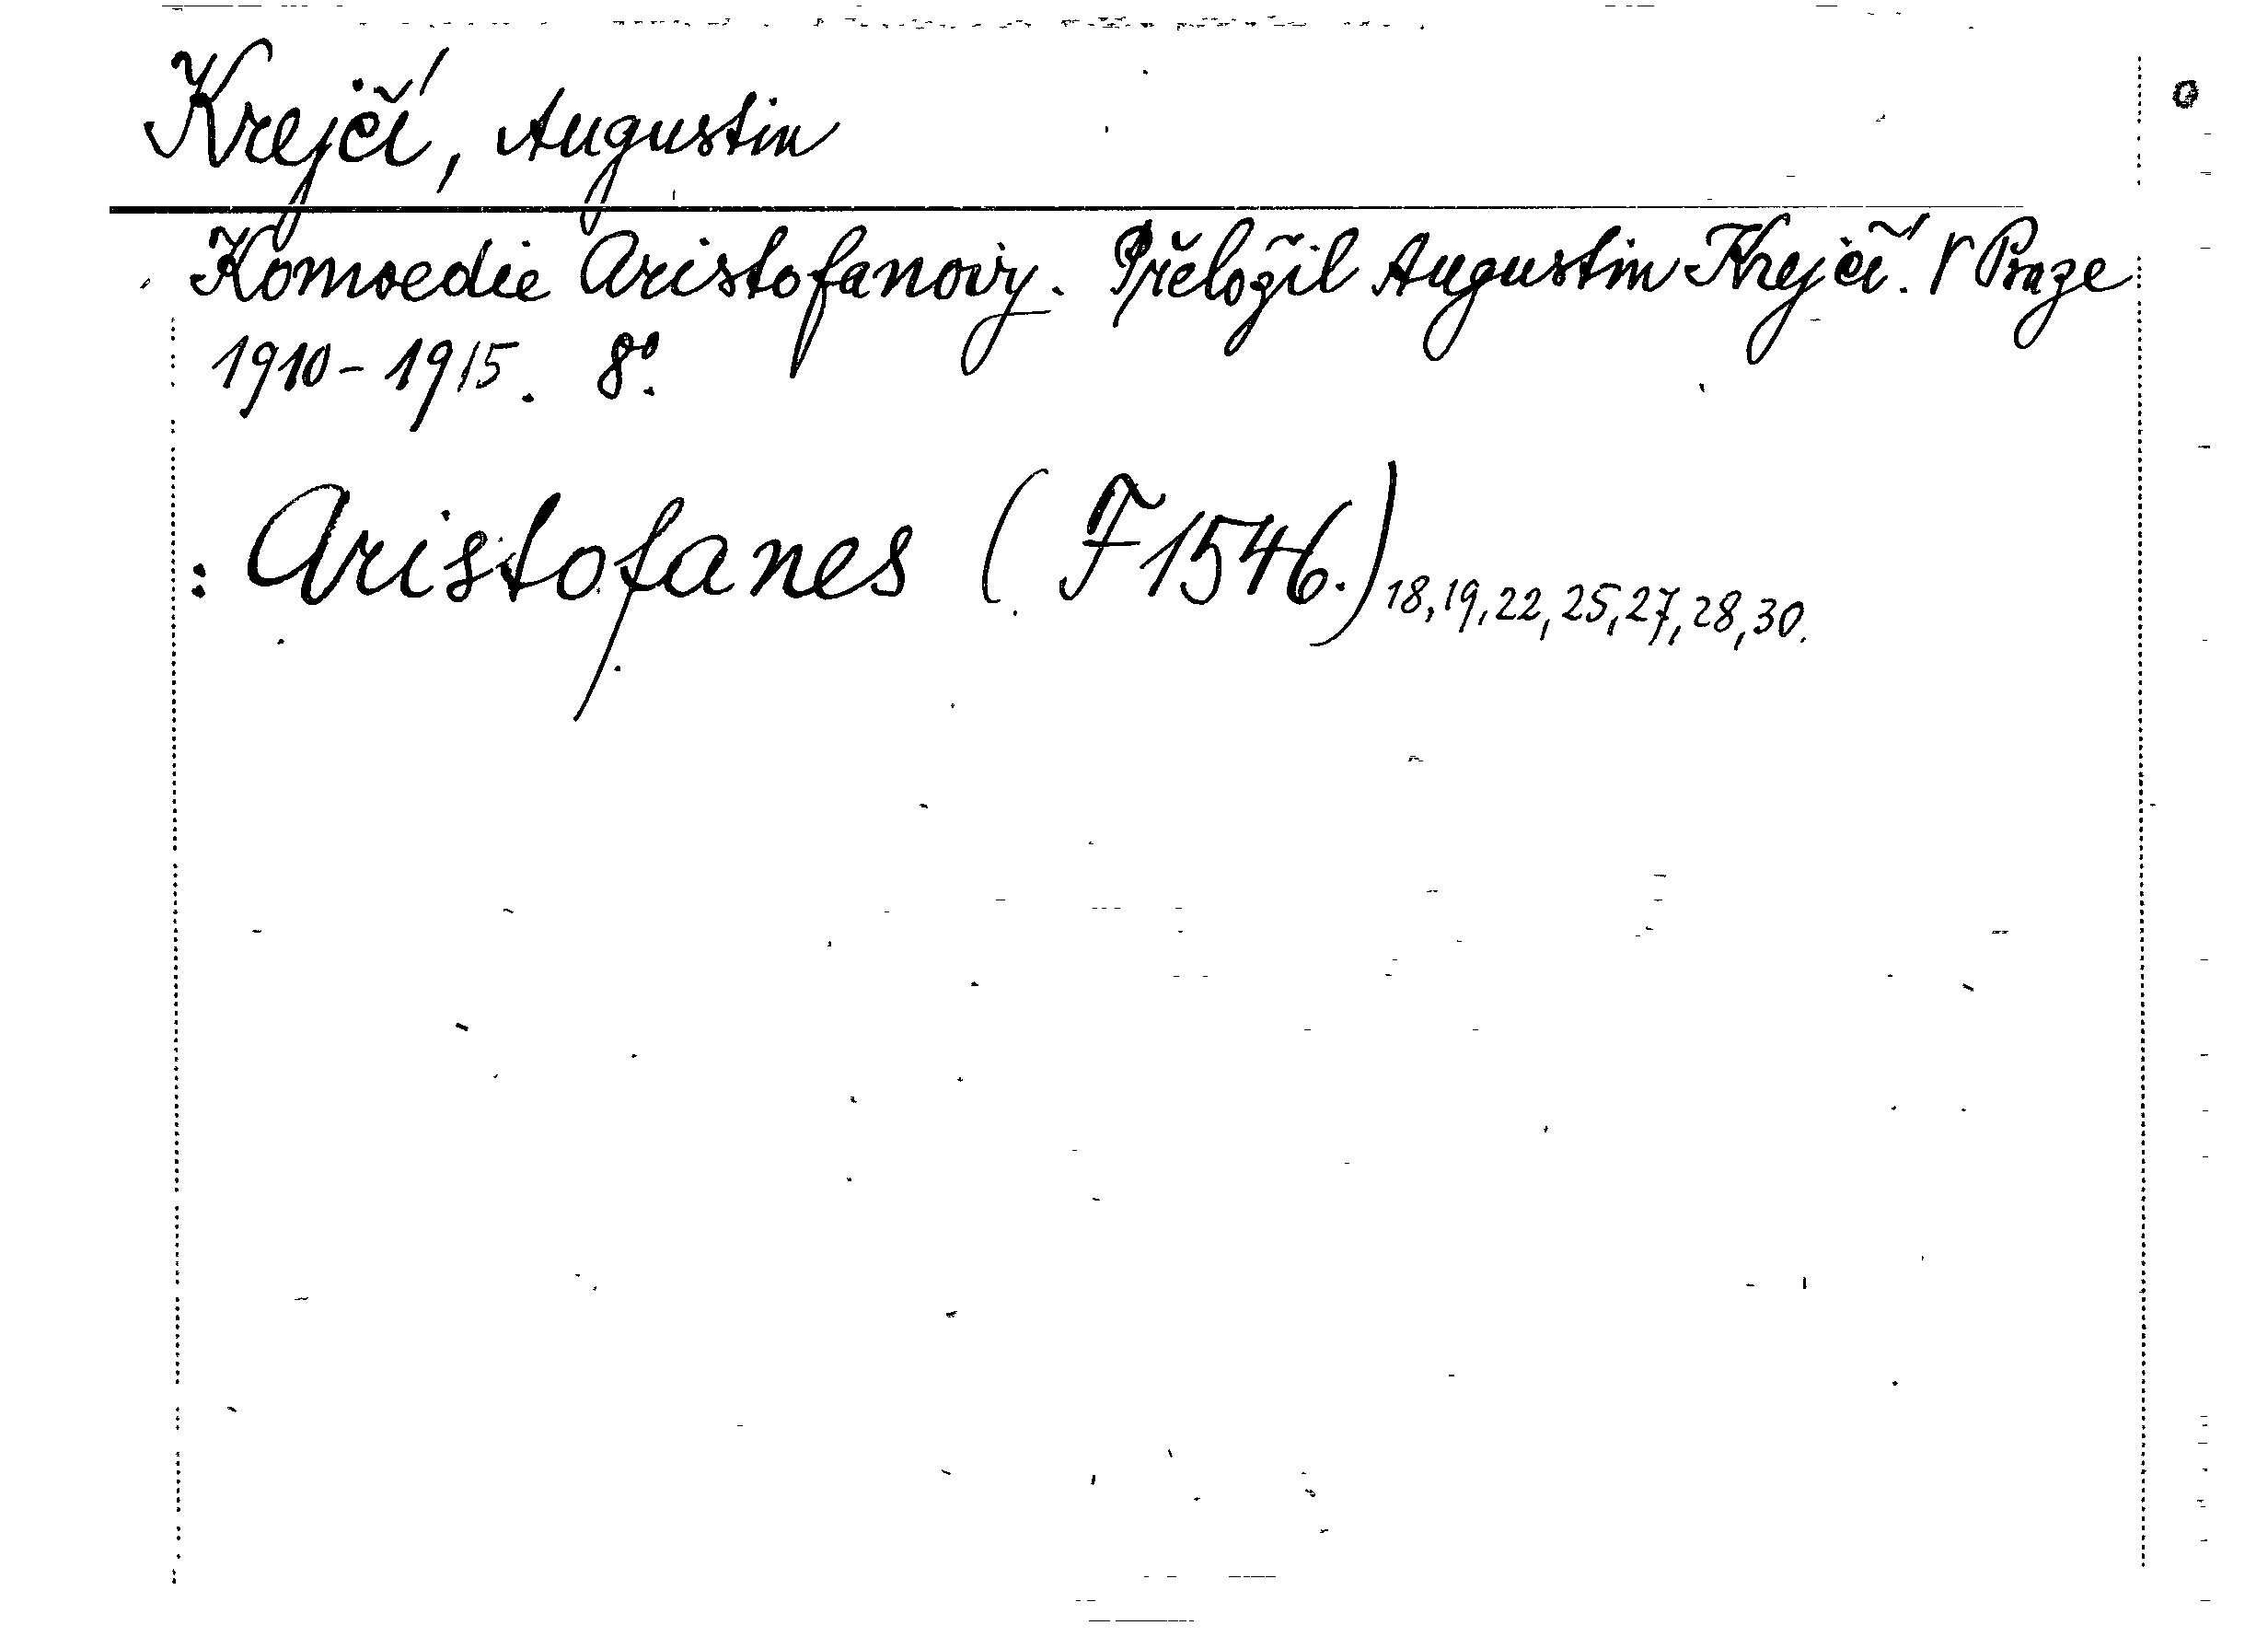 Krejčí, Augustin
Komoedie Aristofanovy. Přeložil Augustin Krejčí. V Praze
1910-1915. 8°.
: Aristofanes (F 1546.) 18, 19, 22, 25, 27, 28, 30.